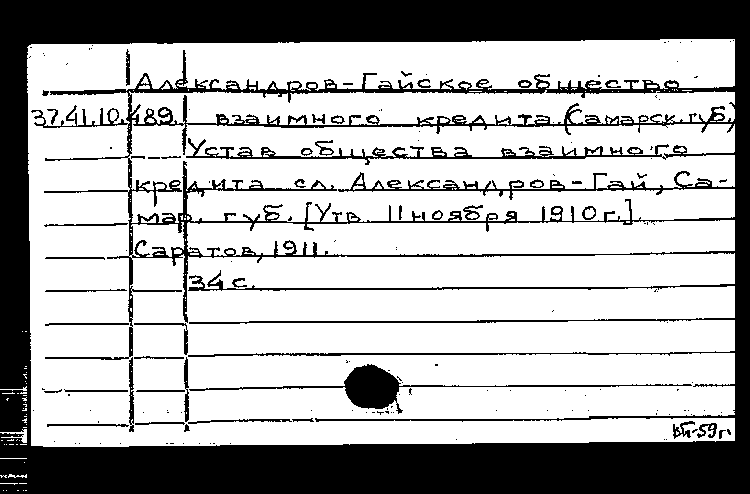 Александров-Гайское общество
37.41.10.489. взаимного кредита (Самарск. губ.)
Устав общества взаимного
кредита сл. Александров-Гай, Са-
мар. губ. [Утв. 11 ноября 1910 г.].
Саратов, 1911.
34 с.